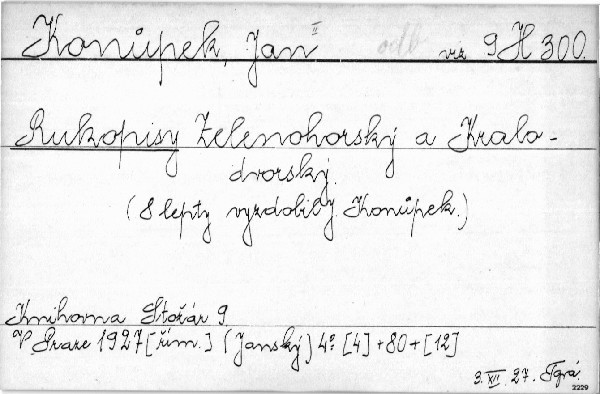 Konůpek, Jan II odb viz 9 H 300.
Rukopisy Zelenohorský a Kralo-
dvorský.
(8 lepty vyzdobil J. Konůpek.)
Knihovna Stožár 9
V Praze 1927 [řím.] (Janský) 4° [4] + 80 + [12]
3. XII. 27.
2229